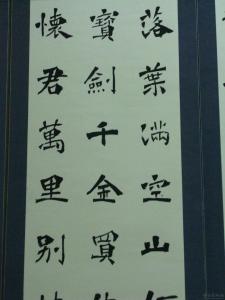 落葉滿空山何
寶劍千金買
懷君萬里別